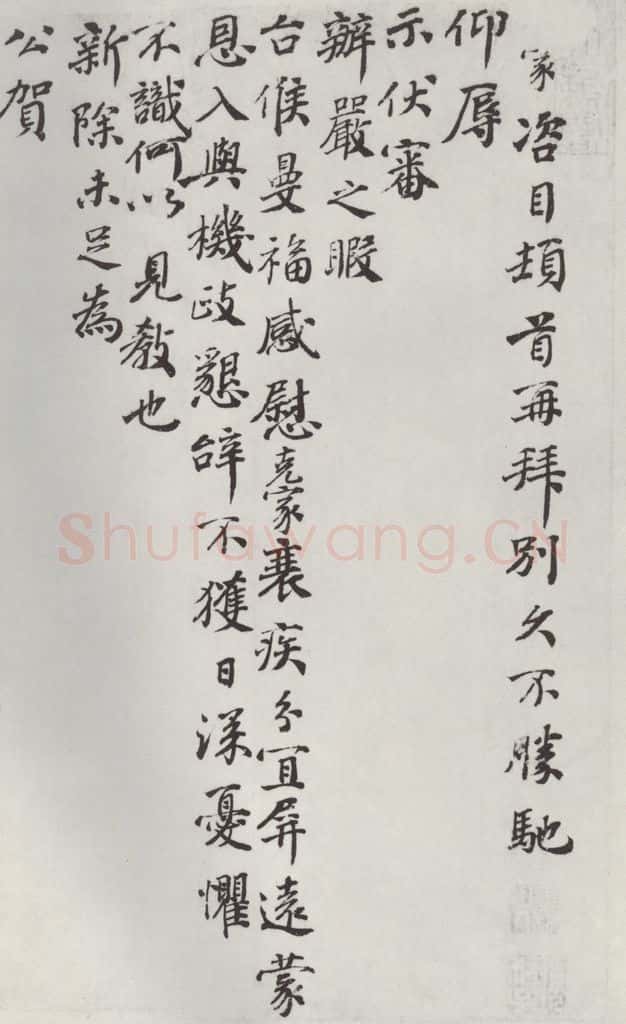 家咨目頓首再拜別久不勝馳
仰辱
示伏審
辦嚴之暇
台候曼福感慰克家衰疾分宜屏遠蒙
恩入與機政懇辝不獲日深憂懼
不識何以見教也
新除未足為
公賀
Shufawang.CN